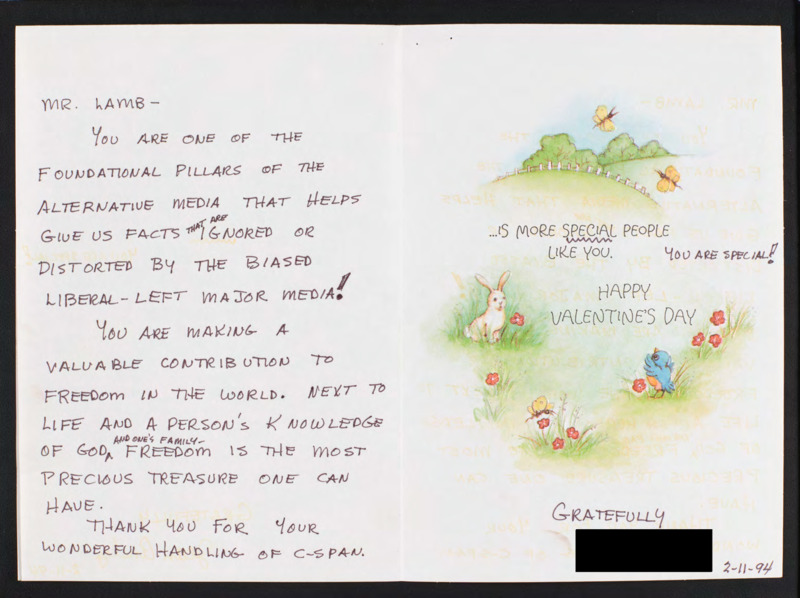 MR. LAMB-
YOU ARE ONE OF THE
FOUNDATIONAL PILLARS OF THE
ALTERNATIVE MEDIA THAT HELPS
GIVE US FACTS THAT ARE IGNORED OR
DISTORTED BY THE BIASED
LIBERAL-LEFT MAJOR MEDIA!
YOU ARE MAKING A
VALUABLE CONTRIBUTION TO
FREEDOM IN THE WORLD. NEXT TO
LIFE AND A PERSON'S KNOWLEDGE
OF GOD, AND ONE'S FAMILY- FREEDOM IS THE MOST
PRECIOUS TREASURE ONE CAN
HAVE.
THANK YOU FOR YOUR
WONDERFUL HANDLING OF C-SPAN.
...IS MORE SPECIAL PEOPLE
LIKE YOU.
YOU ARE SPECIAL!
HAPPY
VALENTINE'S DAY
GRATEFULLY
2-11-94